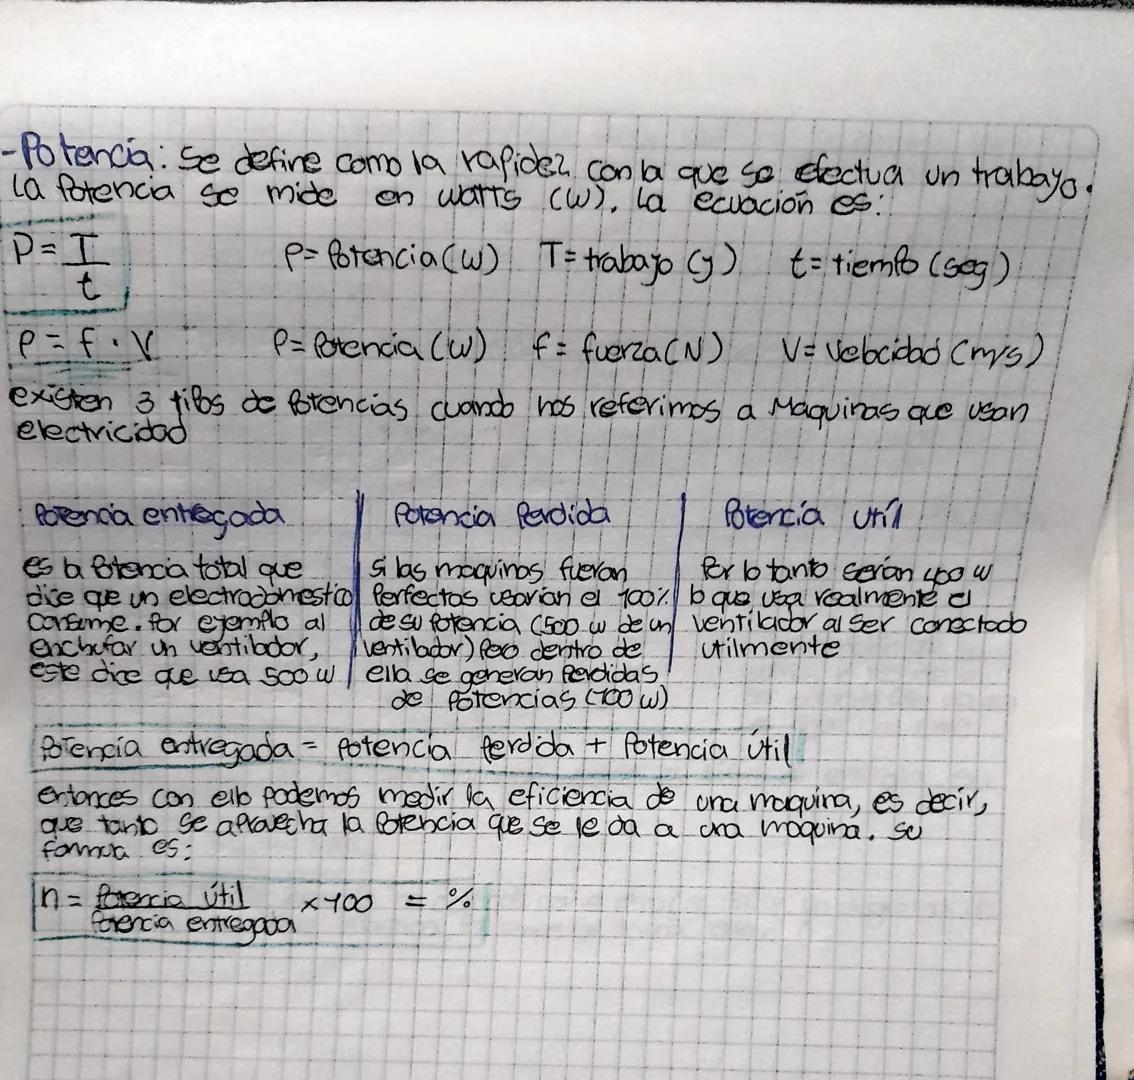 -Potencia: Se define como la rapidez con la que se efectua un trabajo.
La Potencia se mide en watts (w). La ecuación es:
P = T/t P= Potencia (w) T= trabajo (y) t= tiempo (seg)
P = f · V P= Potencia (w) f= fuerza (N) V= Velocidad (m/s)
existen 3 tipos de Potencias cuando nos referimos a Maquinas que usan
electricidad
Potencia entregada
es la Potencia total que
dice que un electrodomestico
consume. Por ejemplo al
enchufar un ventilador,
este dice que usa 500 w
Potencia Perdida
si las maquinas fueran
Perfectas usarian el 100%
de su potencia (500 w de un
ventilador) Pero dentro de
ella se generan Perdidas
de Potencias (100 w)
Potencia útil
Por lo tanto serían 400 w
lo que usa realmente el
ventilador al ser conectado
utilmente
Potencia entregada = Potencia Perdida + Potencia útil
entonces con ello Podemos medir la eficiencia de una maquina, es decir,
que tanto se aprovecha la Potencia que se le da a una maquina. su
formula es:
n = Potencia útil / Potencia entregada x 100 = %